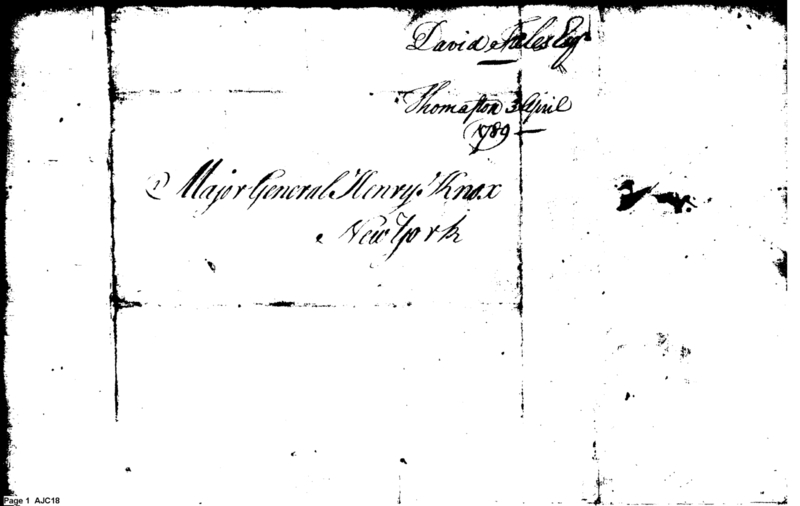 David Fales Esqr
Thomaston 3 April
1789
Major General Henry Knox
New York
Page 1 AJC18